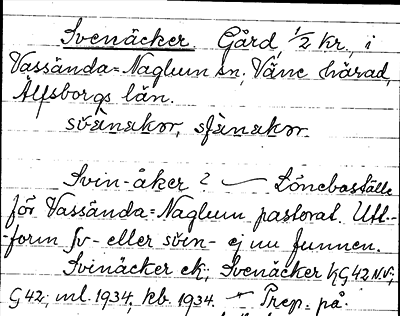 Svenäcker. Gård, 1/2 kr., i
Vassända=Naglum sn, Väne härad,
Älfsborgs län.
svẹnakər, sfẹnakər.
Svin-åker? — Löneboställe
för Vassända=Naglum pastorat. Utt.-
-form sv- eller svin- ej nu funnen.
Svinäcker ek; Svenäcker KG42NV;
G42; ml. 1934; kb. 1934. — Prep. på.